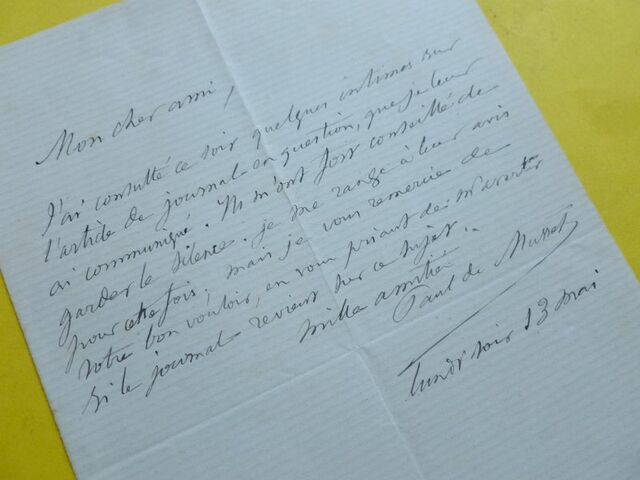 Mon cher ami,
J'ai consulté ce soir quelques intimes sur
l'article de journal en question, que je leur
ai communiqué. Ils m'ont fort conseillé de
garder le silence. je me range à leur avis
pour cette fois, mais je vous remercie de
votre bon vouloir, en vous priant de m'avertir
si le journal revient sur ce sujet.
mille amitiés
Paul de Musset
lundi soir 13 mai